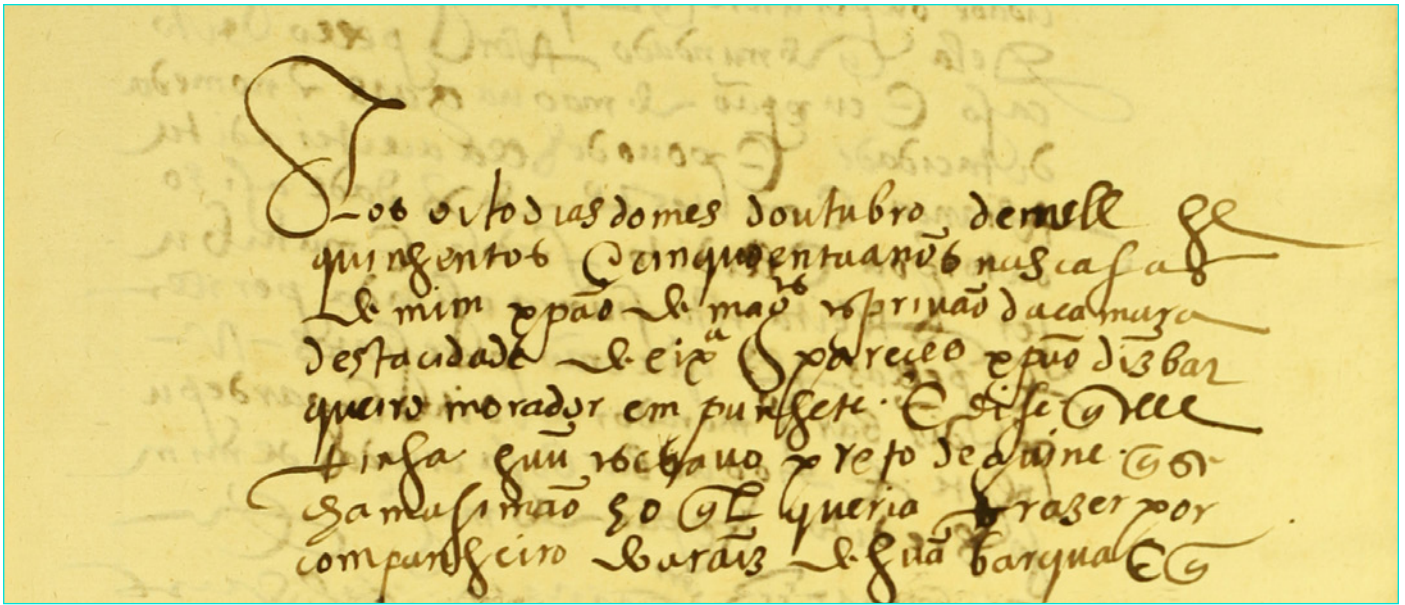 Aos oito dias do mes doutubro de mill he
quinhentos e cinquoenta anos nas casas
de mim xpvão de magrs esprivão da camara
desta cidade de elx.a pareceo xpvão diz bar
queiro morador em punhete. E dise q elle
tinha huu escravo preto de guine. q se
chama simão ho qL queria trazer por
companheiro de araiz de huã barqua E q